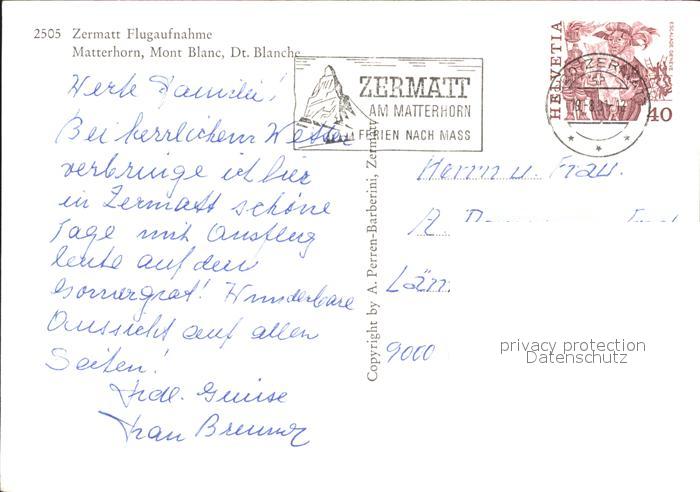 2505 Zermatt Flugaufnahme
Matterhorn, Mont Blanc, Dt. Blanche
Werte Familie!
Bei herrlichem Wetter
verbringe ich hier
in Zermatt schöne
Tage mit Ausflug
heute auf den
Gornergrat! Wunderbare
Aussicht auf allen
Seiten!
Frdl. Grüsse
Frau Brenner
Copyright by A. Perren-Barberini, Zermatt
ZERMATT
AM MATTERHORN
FERIEN NACH MASS
HELVETIA
ESCALADE GENÈVE
40
ZERMATT
Herrn u. Frau
A.
Län
9000
privacy protection
Datenschutz